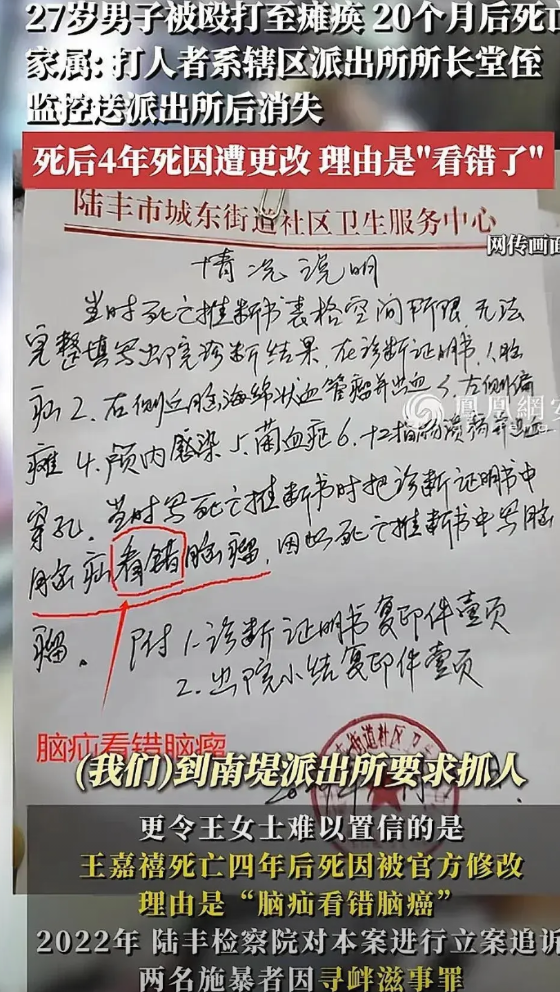 27岁男子被殴打至瘫痪 20个月后死亡
家属: 打人者系辖区派出所所长堂侄
监控送派出所后消失
死后4年死因遭更改 理由是"看错了"
陆丰市城东街道社区卫生服务中心
网传画面
情况说明
当时死亡推断书表格空间所限,无法
完整填写出院诊断结果,在诊断证明书、1脑
疝2、右侧丘脑海绵状血管瘤并出血3左侧偏
凤凰网
瘫4、颅内感染5、菌血症6、十二指肠溃疡并出血
穿孔。当时写死亡推断书时把诊断证明书中
脑疝看错脑瘤,因此死亡推断书中写脑
瘤。 附1、诊断证明书复印件壹页
2、出院小结复印件壹页
脑疝看错脑瘤
街道社区卫生
(我们)到南堤派出所要求抓人
更令王女士难以置信的是
王嘉禧死亡四年后死因被官方修改
理由是“脑疝看错脑癌”
2022年 陆丰检察院对本案进行立案追诉
两名施暴者因寻衅滋事罪